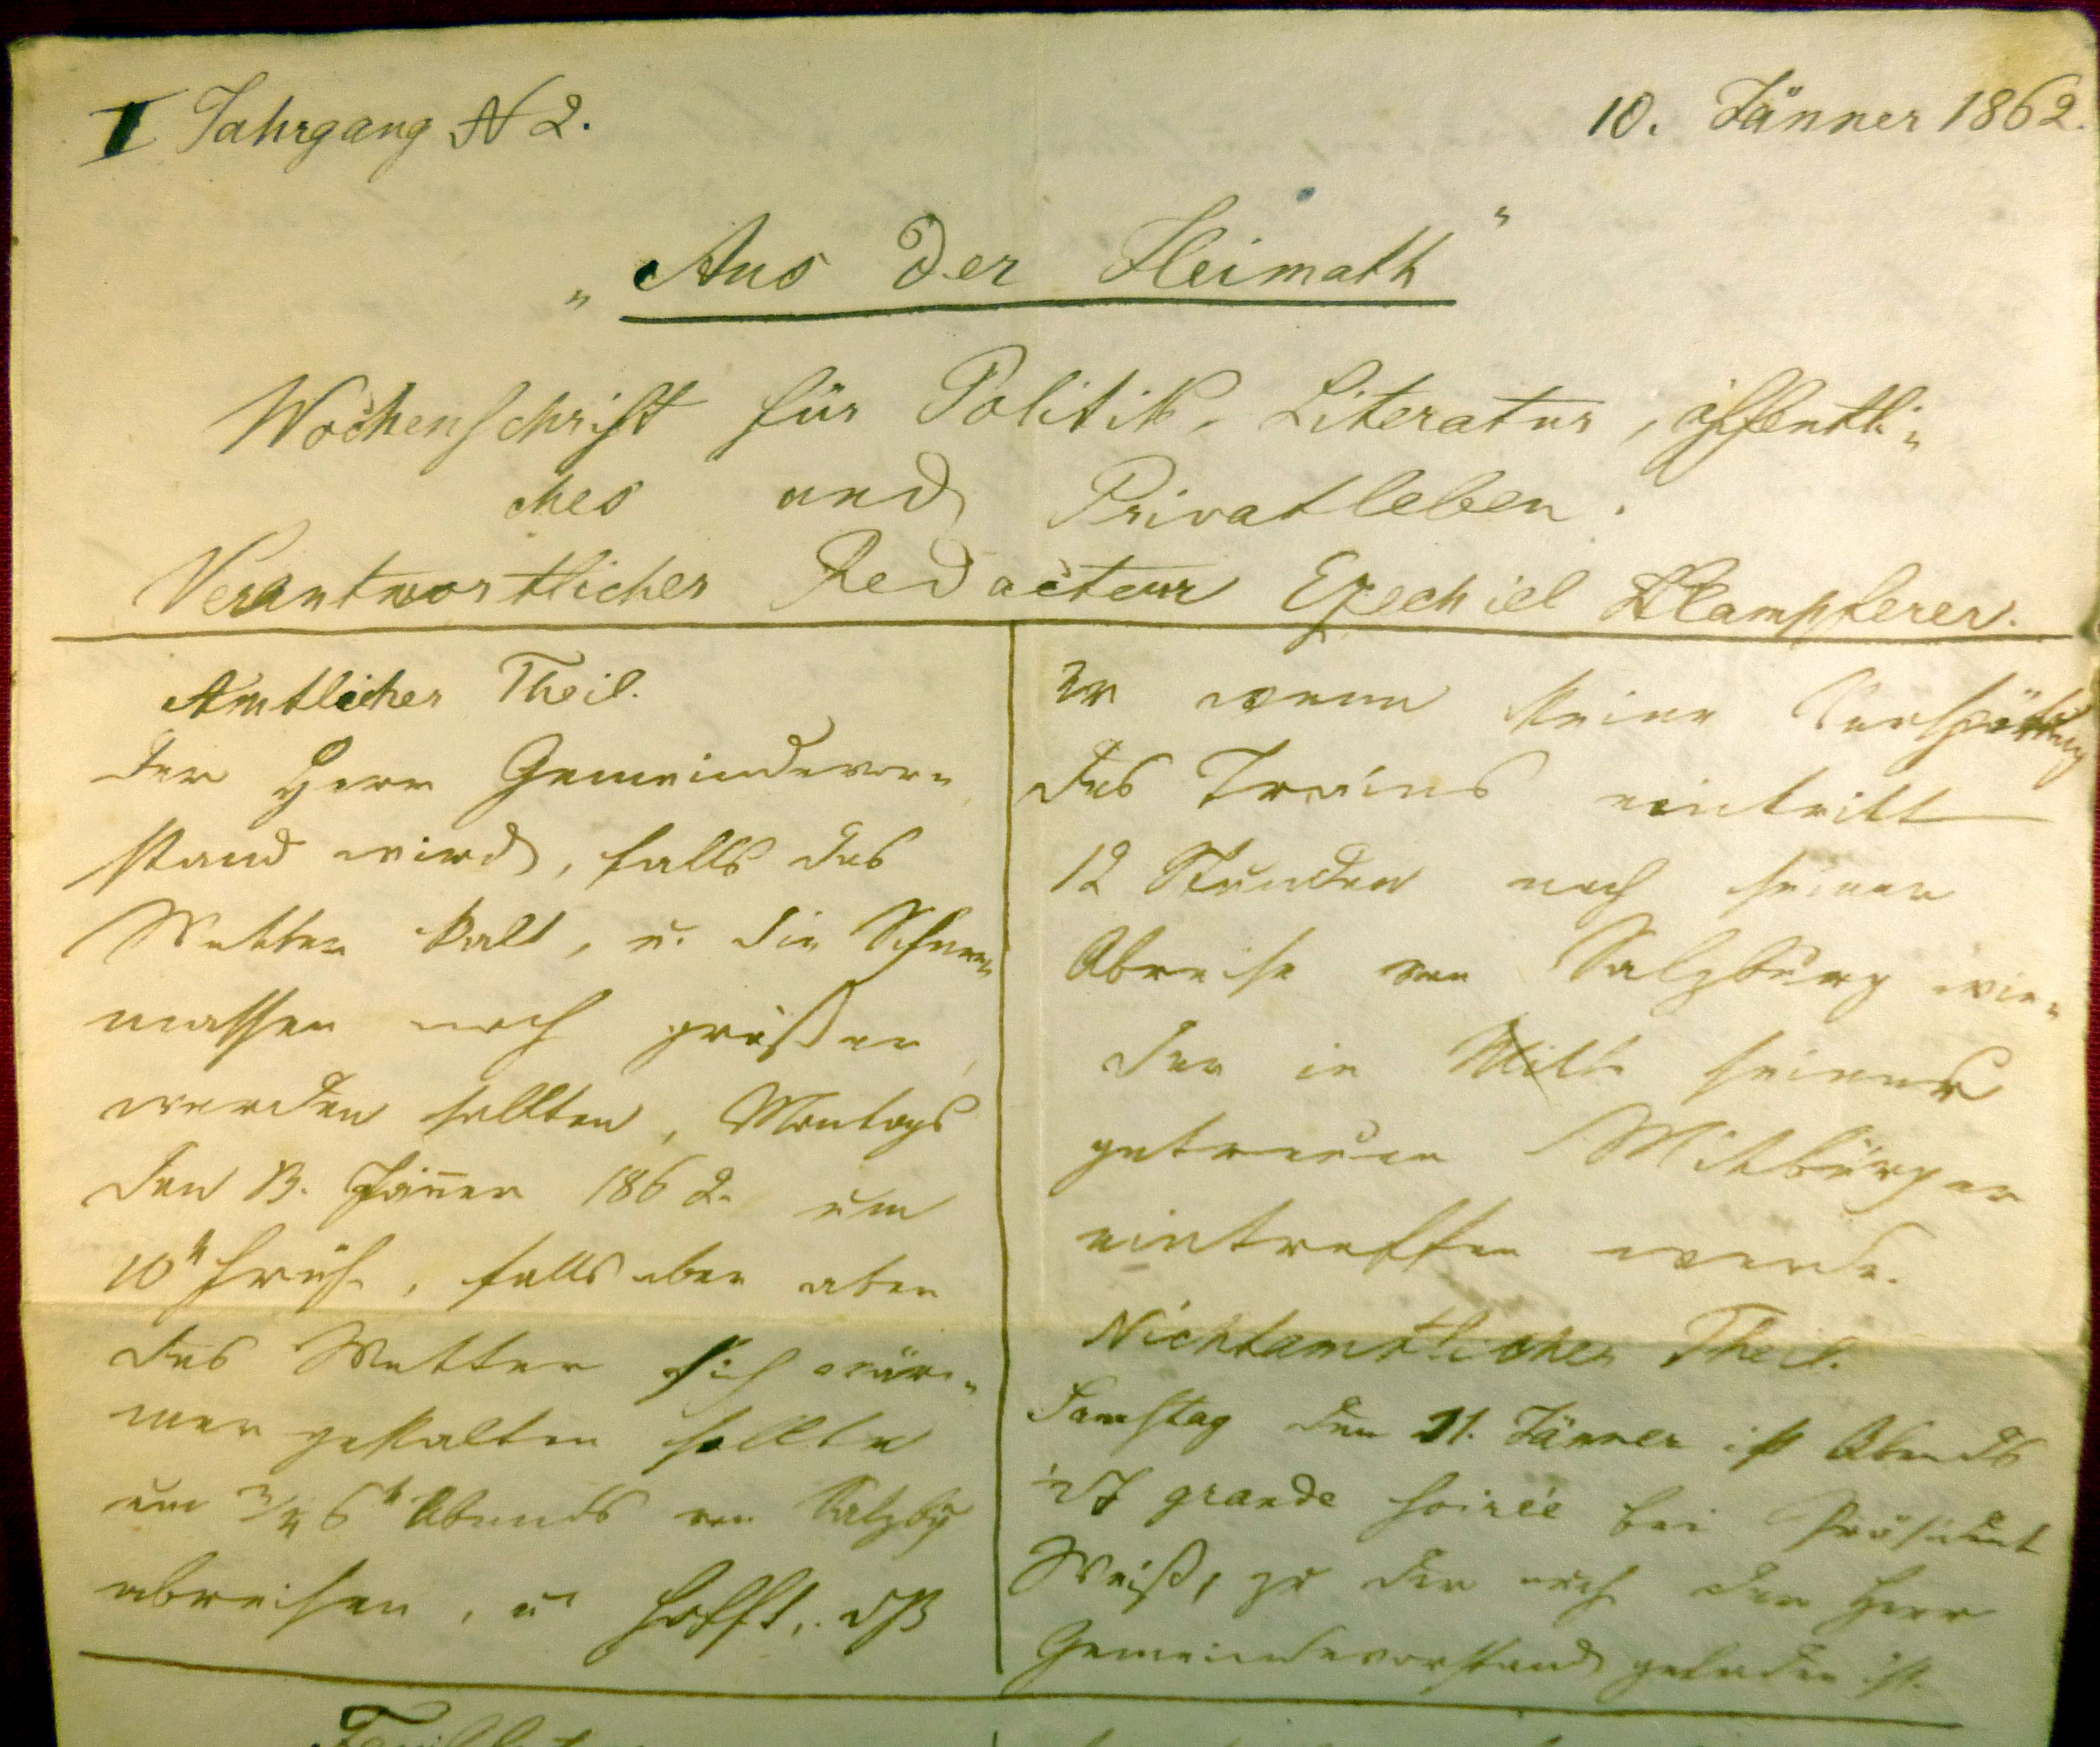 I Jahrgang N 2.
10. Jänner 1862.
„Aus der Heimath"
Wochenschrift für Politik, Literatur, öffentli„
ches und Privatleben.
Verantwortlicher Redacteur Ezechiel Klampferer.
Amtlicher Theil.
Der Herr Gemeindevor„
stand wird, falls das
Wetter kalt, u. die Schnee„
massen noch größer
werden sollten, Montags
den 13. Jänner 1862 um
10h Früh, falls aber aber
das Wetter sich wär„
mer gestalten sollte
um 3/4 6h Abends von Salzbg
abreisen, u hofft, dß
er wenn keine Verspättung
des Trains eintritt
12 Stunden nach seiner
Abreise von Salzburg wie„
der in Mitte seiner
getreuen Mitbürger
eintreffen werde.
Nichtamtlicher Theil.
Samstag den 11. Jänner ist Abends
grande soirée bei Präsident
Weiß, zu der auch der Herr
Gemeindevorstand geladen ist.